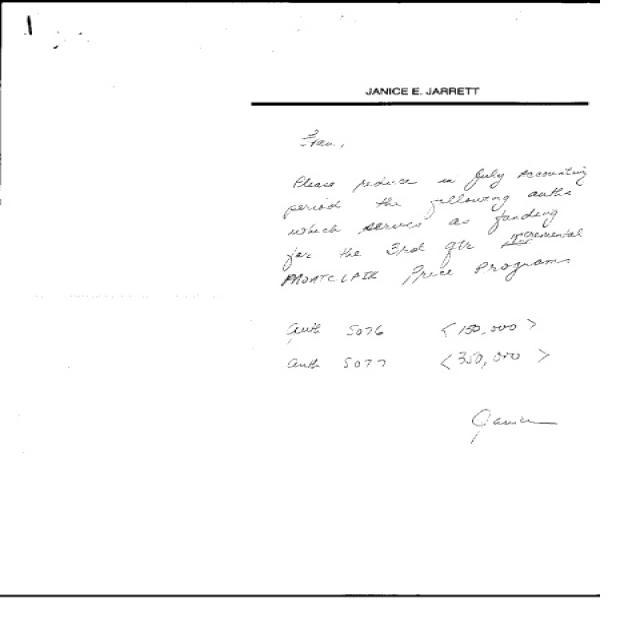 JANICE E. JARRETT
Fran,
Please reduce in July accounting
period the following auths
which serves as funding
for the 3rd qtr incremental
MONTCLAIR Price Programs
Auth 5076 <150,000>
Auth 5077 <350,000>
Janice